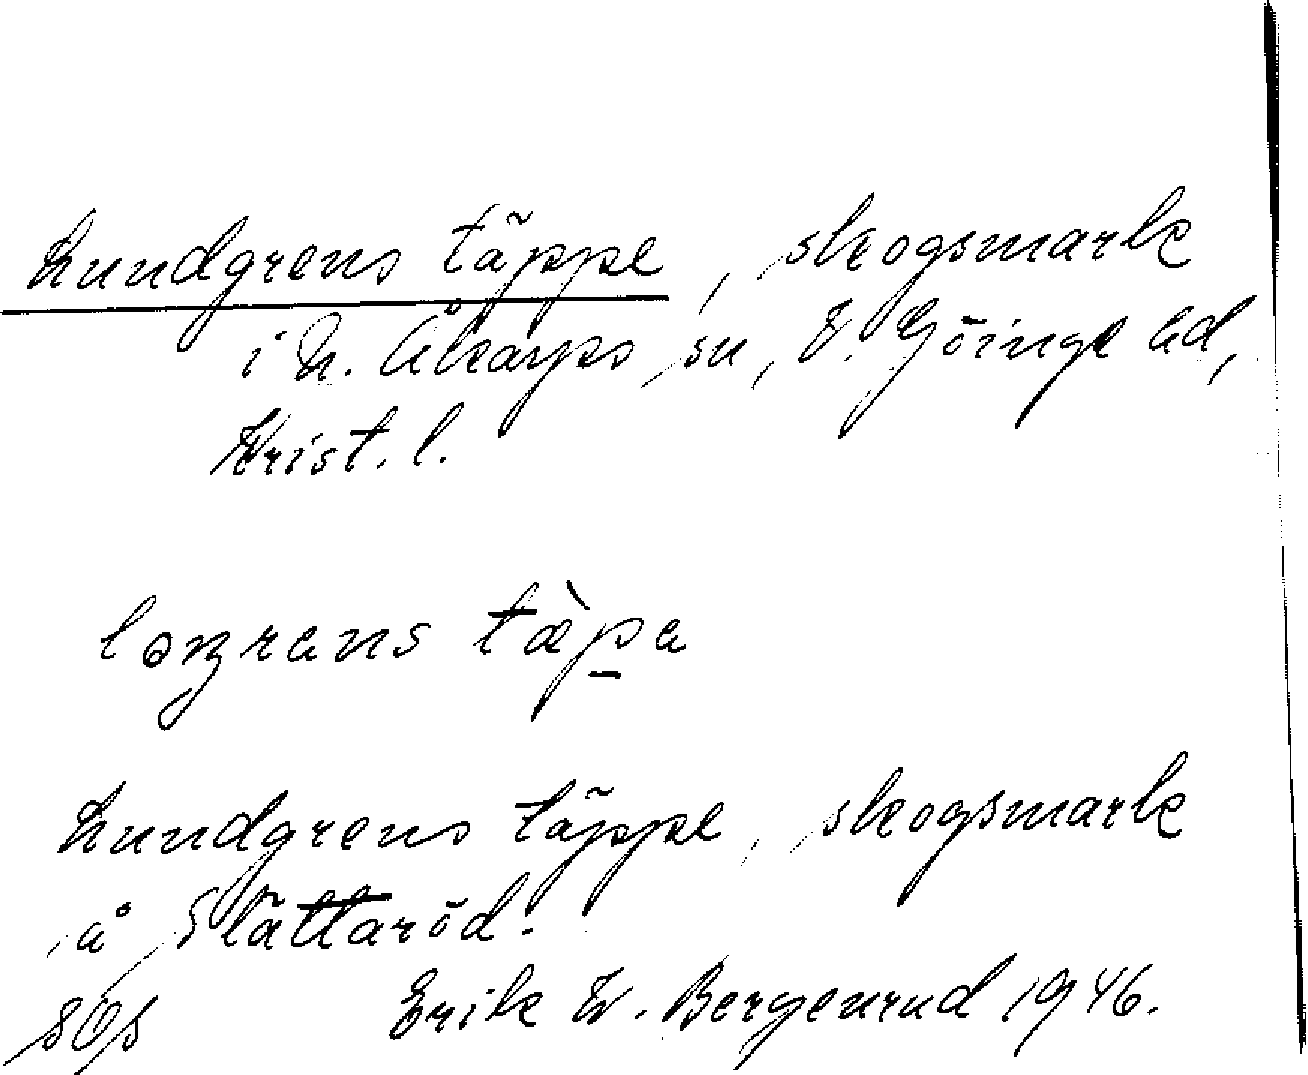 Lundgrens täppe, skogsmark
i N. Åkarps sn, V. Göinge hd,
Krist. l.
Lundgrens täppe, skogsmark
å Slättaröd.
Erik W. Bergenrud 1946.